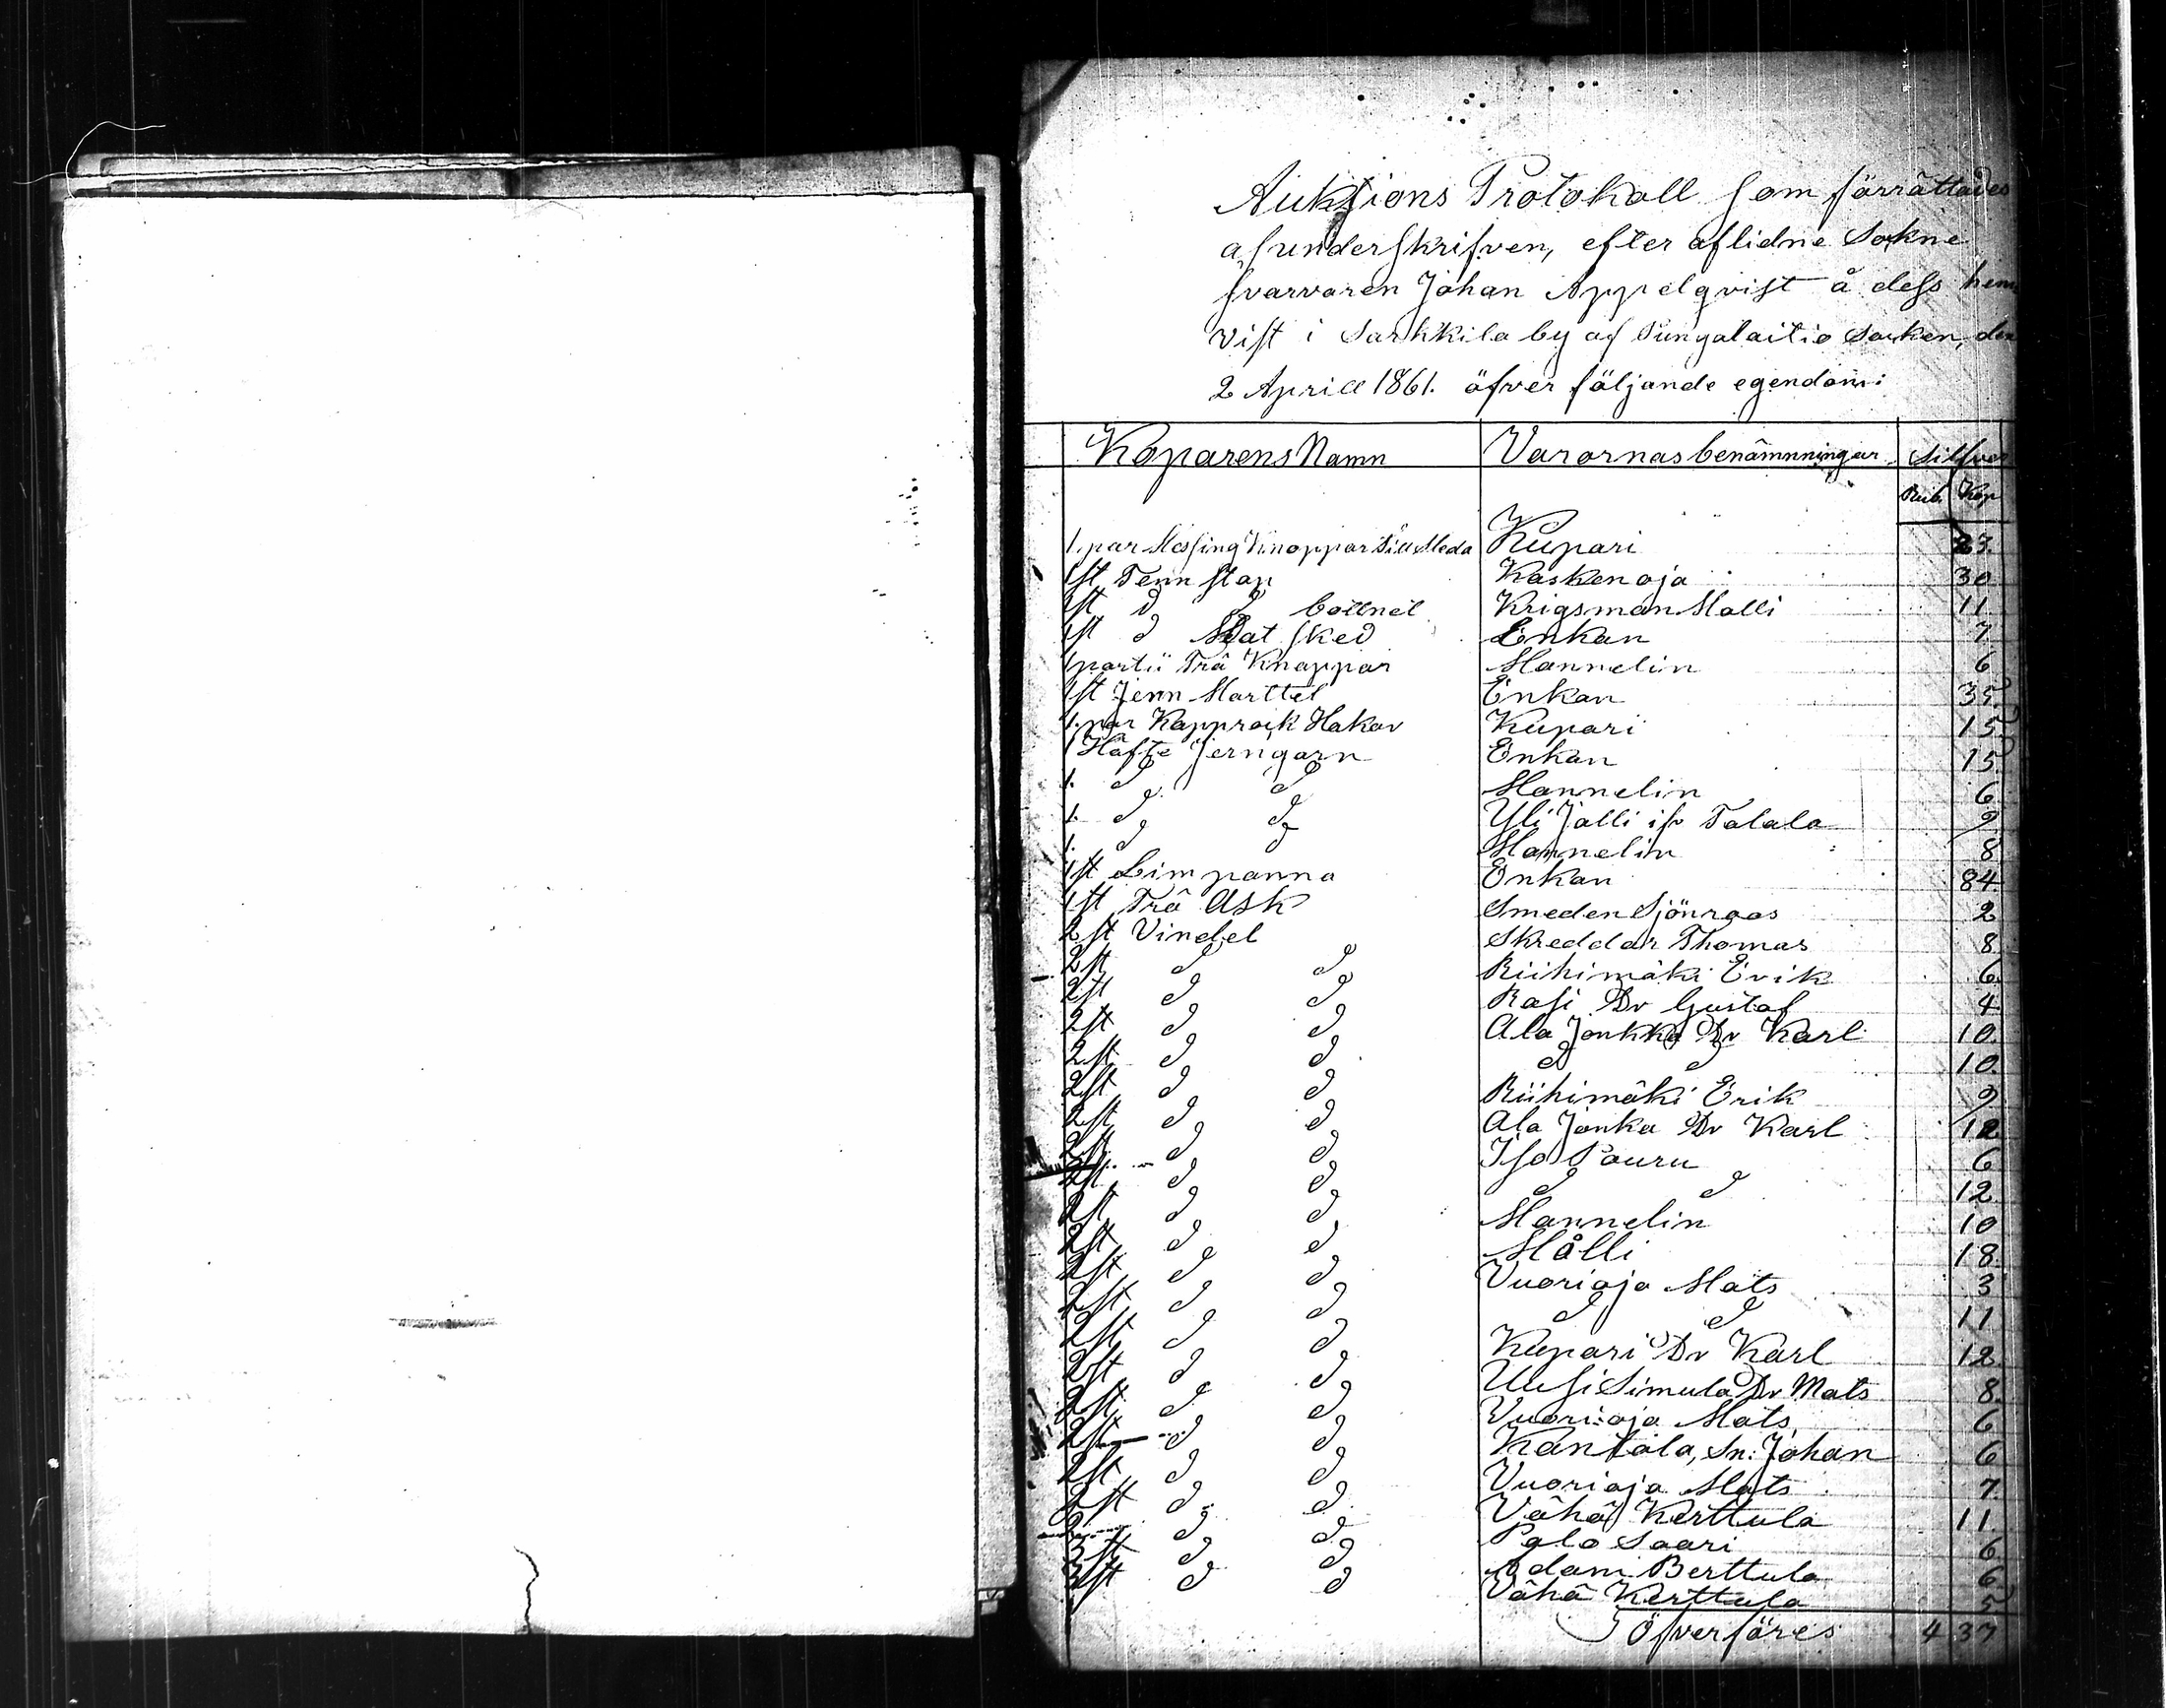 Auktions Protokoll som förrättades
af underskrifven, efter aflidne Sokne
svarvaren Johan Appelqvist å dess hem
vist i Sarkkila by af Pungalaitio Socken, den
2 Aprill 1861. öfver följande egendom:
Köparens Namn Varornas benämnningar Silfver
Rub. Kop
1. par Messing Knappar Till Meda Kupari 23.
1 st Tenn stop Kaskenoja 30
1 st d d Kriigsman Malli 11
1 st d Mat sked Enkan 7
1 parti Trä Knappar Mannelin 6
1 st Jern Marttel Enkan 35
1. par Kapprock Hakar Kupari 15
1 Häfte Jerngarn Enkan 15
1. d d Mannelin 6
1. d d Yli Jalli ifr Talala 9
1. d d Mannelin 8
1 st Limpanna Enkan 84
1 st Trä Ask Smeden Sjönroos 2
2 st Vindel Skreddar Thomas 8
2 st d d Riihimäki Erik 6
2 st d d Rasi Dr Gustaf 4
2 st d d Ala Jonkka Dr Karl 10
2 st d d d d 10
2 st d d Riihimäki Erik 9
2 st d d Ala Jonka Dr Karl 12
2 st d d Iso Pouru 6
2 st d d d d 12
2 st d d Mannelin 10
2 st d d Målli 18
2 st d d Vuorioja Mats 3
2 st d d d d 11
2 st d d Kupari Dr Karl 12
2 st d d Uusi Simula Dr Mats 8
2 st d d Vuorioja Mats 6
2 st d d Kantola, Sn: Johan 6
2 st d d Vuorioja Mats 7
2 st d d Vähä Kerttula 11
2 d d Palo Saari 6
3 st d d Adam Berttula 6
3 st d d Vähä Kerttula 5
Öfverföres 4 37